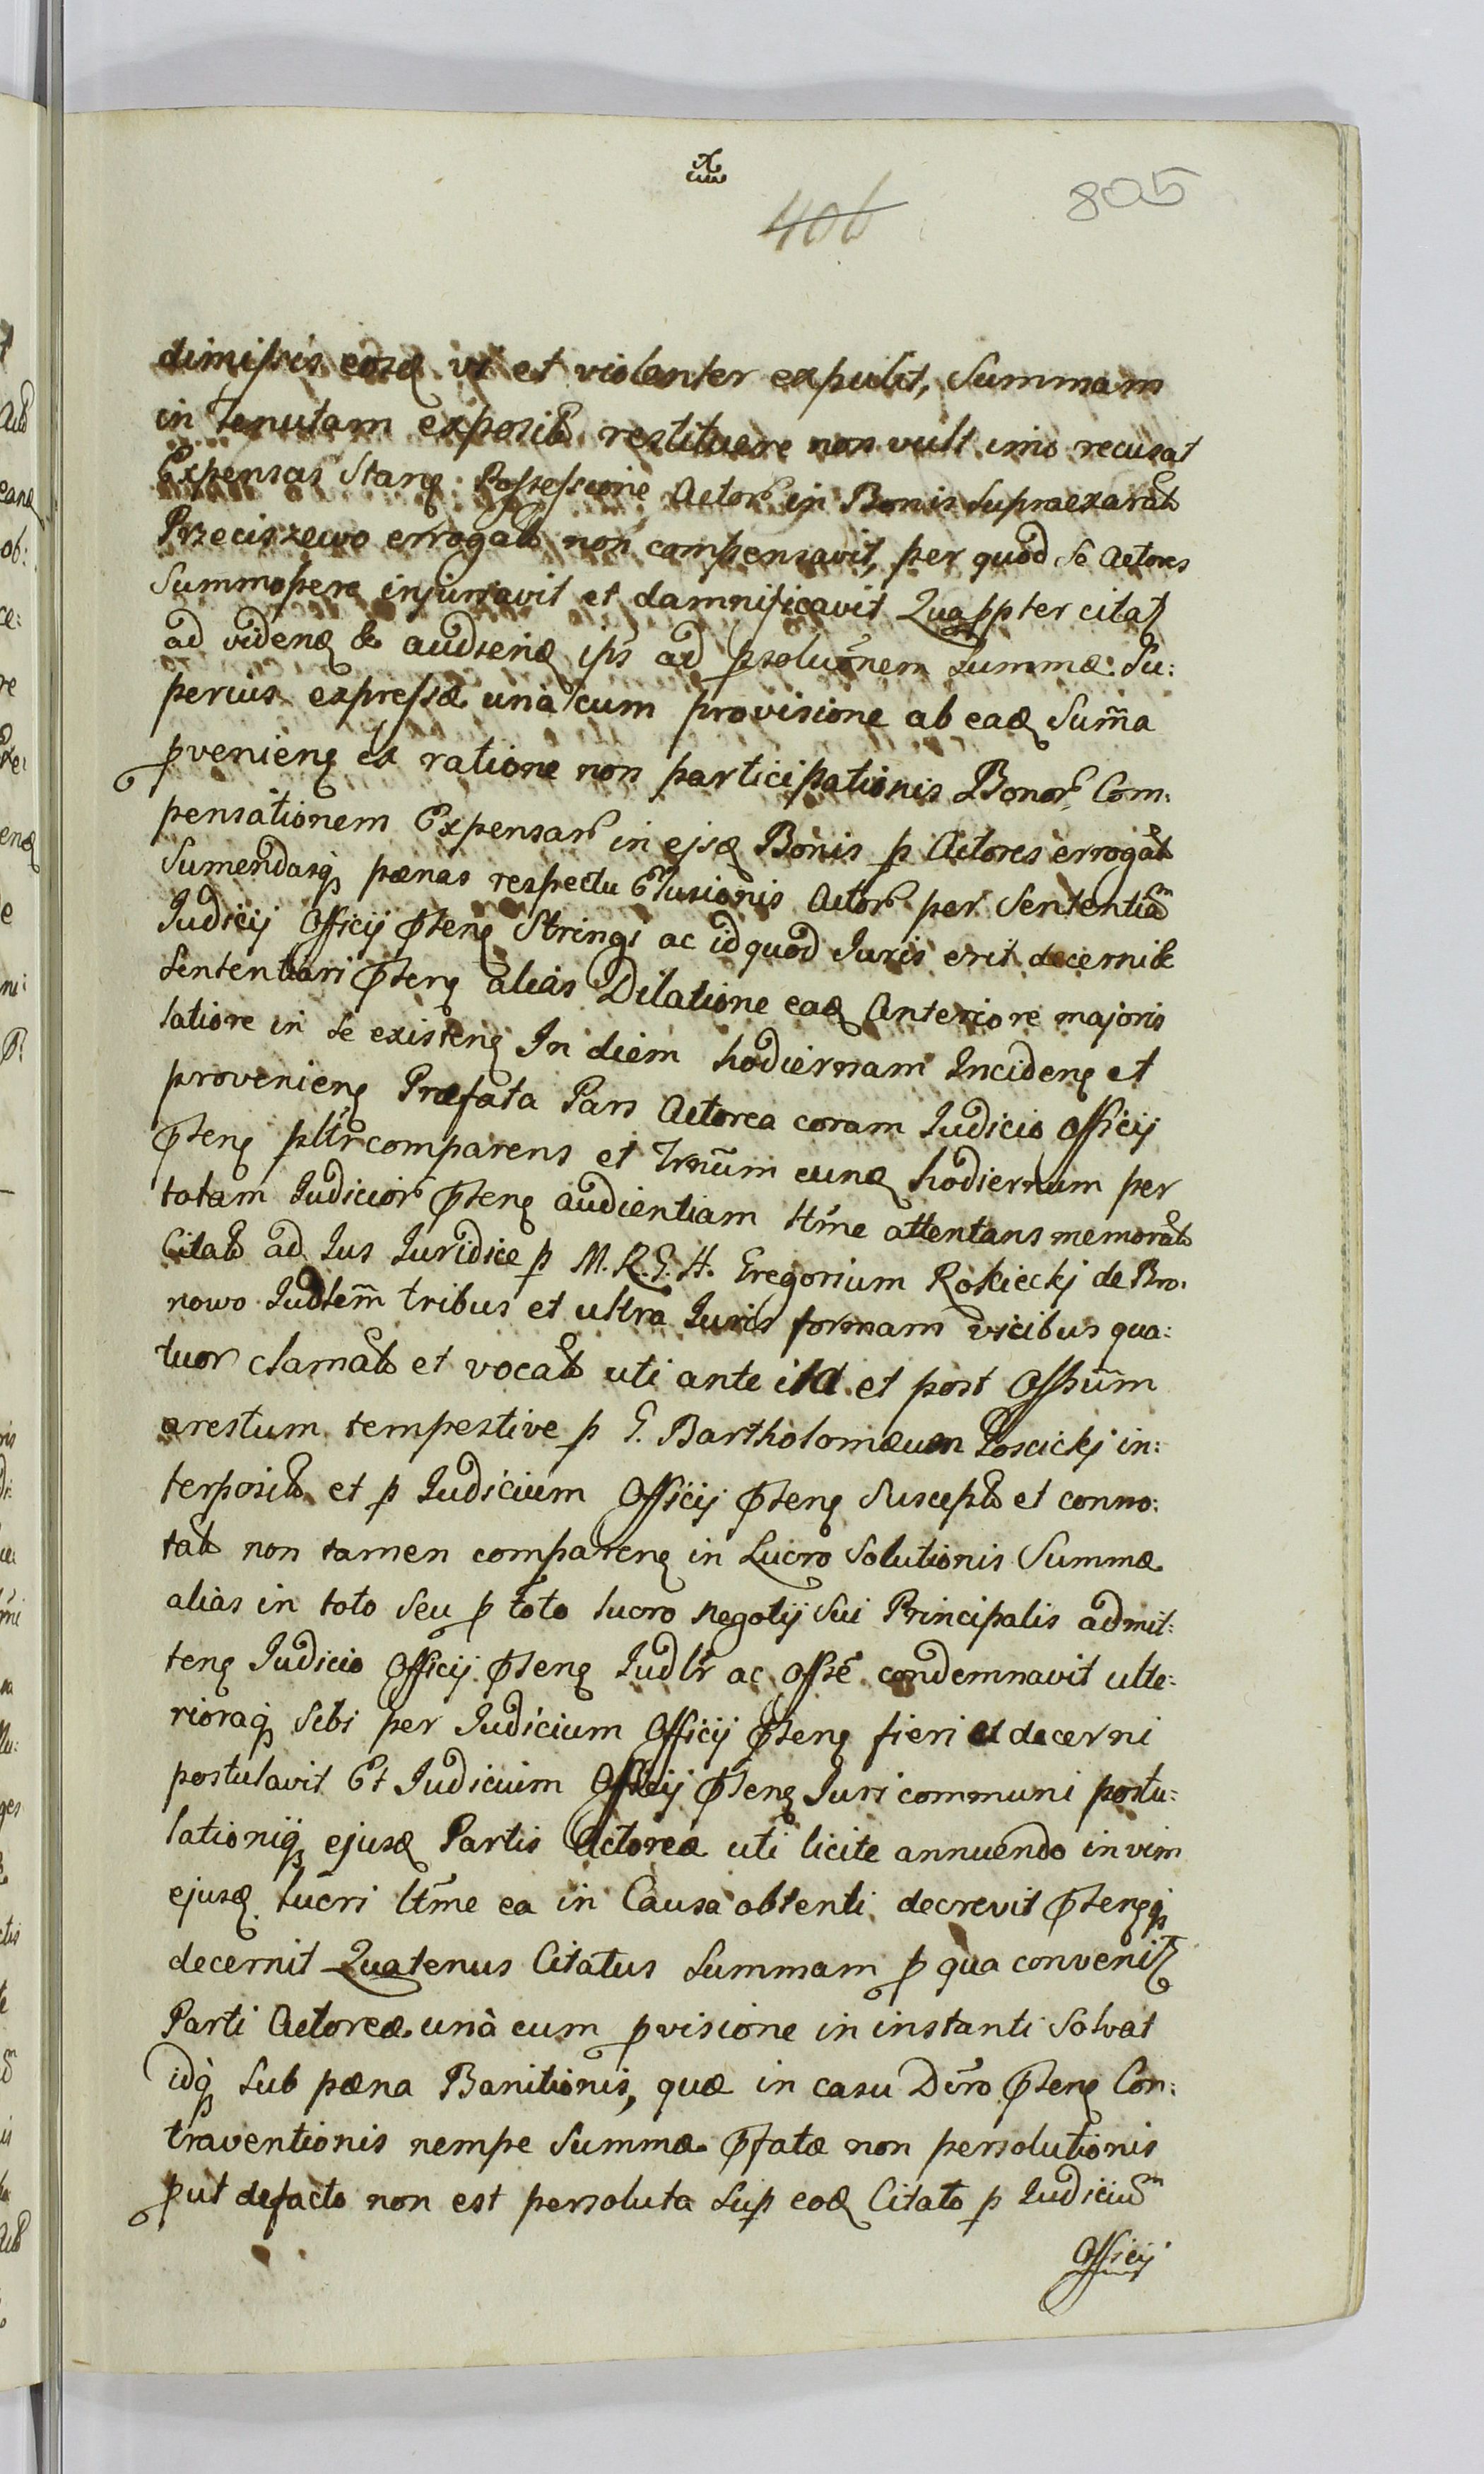 406 805
dimissis eosq vi et violenter expulit, Summam
in Tenutam exposit restituere non vult imo recusat
Expensas Stang Possessione Actor in Bonis Supraexarat
Przeciszewo errogat non compensavit, per quod se Actores
Summopere injuriavit et damnificavit Quappter citat
ad videnq & audienq ips ad psoluōnem Summæ Su:
perius expressæ unà cum provisione ab eaq Sum̃a
pvenienq et ratione non participationis Bonor Com:
pensationem Expensar in ejsq Bonis p Actores errogat
Sumendasq pænas respectu Elusionis Actor per Sententiam
Judicij Officij Pteng Stringi ac id quod Juris erit decernit
Sententiari Pteng alias Dilatione eaq Anteriore majoris
latiore in se existeng In diem hodiernam Incideng et
provenieng Præfata Pars Actorea coram Judicio Officij
Pteng pltr comparens et Trnūm eunq hodiernum per
totam Judicior Pteng audientiam ltme attentans memorat
Citat ad Jus Juridice p M. R. G. H. Gregorium Rokieckj de Bro:
nowo Judtem̃ tribus et ultra Juris formam vicibus qua:
tuor clamat et vocat uti ante ita et post Offsūm
arestum tempestive p G. Bartholomæum Loscickj in:
terposit et p Judicium Officij Pteng Suscept et conno:
tat non tamen compareng in Lucro Solutionis Summæ
alias in toto Seu p toto lucro negotij Sui Principalis admit:
teng Judicio Officij Pteng Judltr ac Offsē condemnavit ulte:
rioraq Sibi per Judicium Officij Pteng fieri et decerni
postulavit Et Judicium Officij Pteng Juri communi postu:
lationiq ejusq Partis Actoreæ uti licite annuendo in vim
ejusq lucri ltme ea in Causa obtenti decrevit Ptengq
decernit Quatenus Citatus Summam p qua convenit
Parti Actoreæ unà cum pvisione in instanti Solvat
idq Sub pæna Banitionis, quæ in casu Dēro Pteng Con:
traventionis nempe Summæ Pfatæ non persolutionis
put defacto non est persoluta Sup eoq Citato p Judicium
Officij